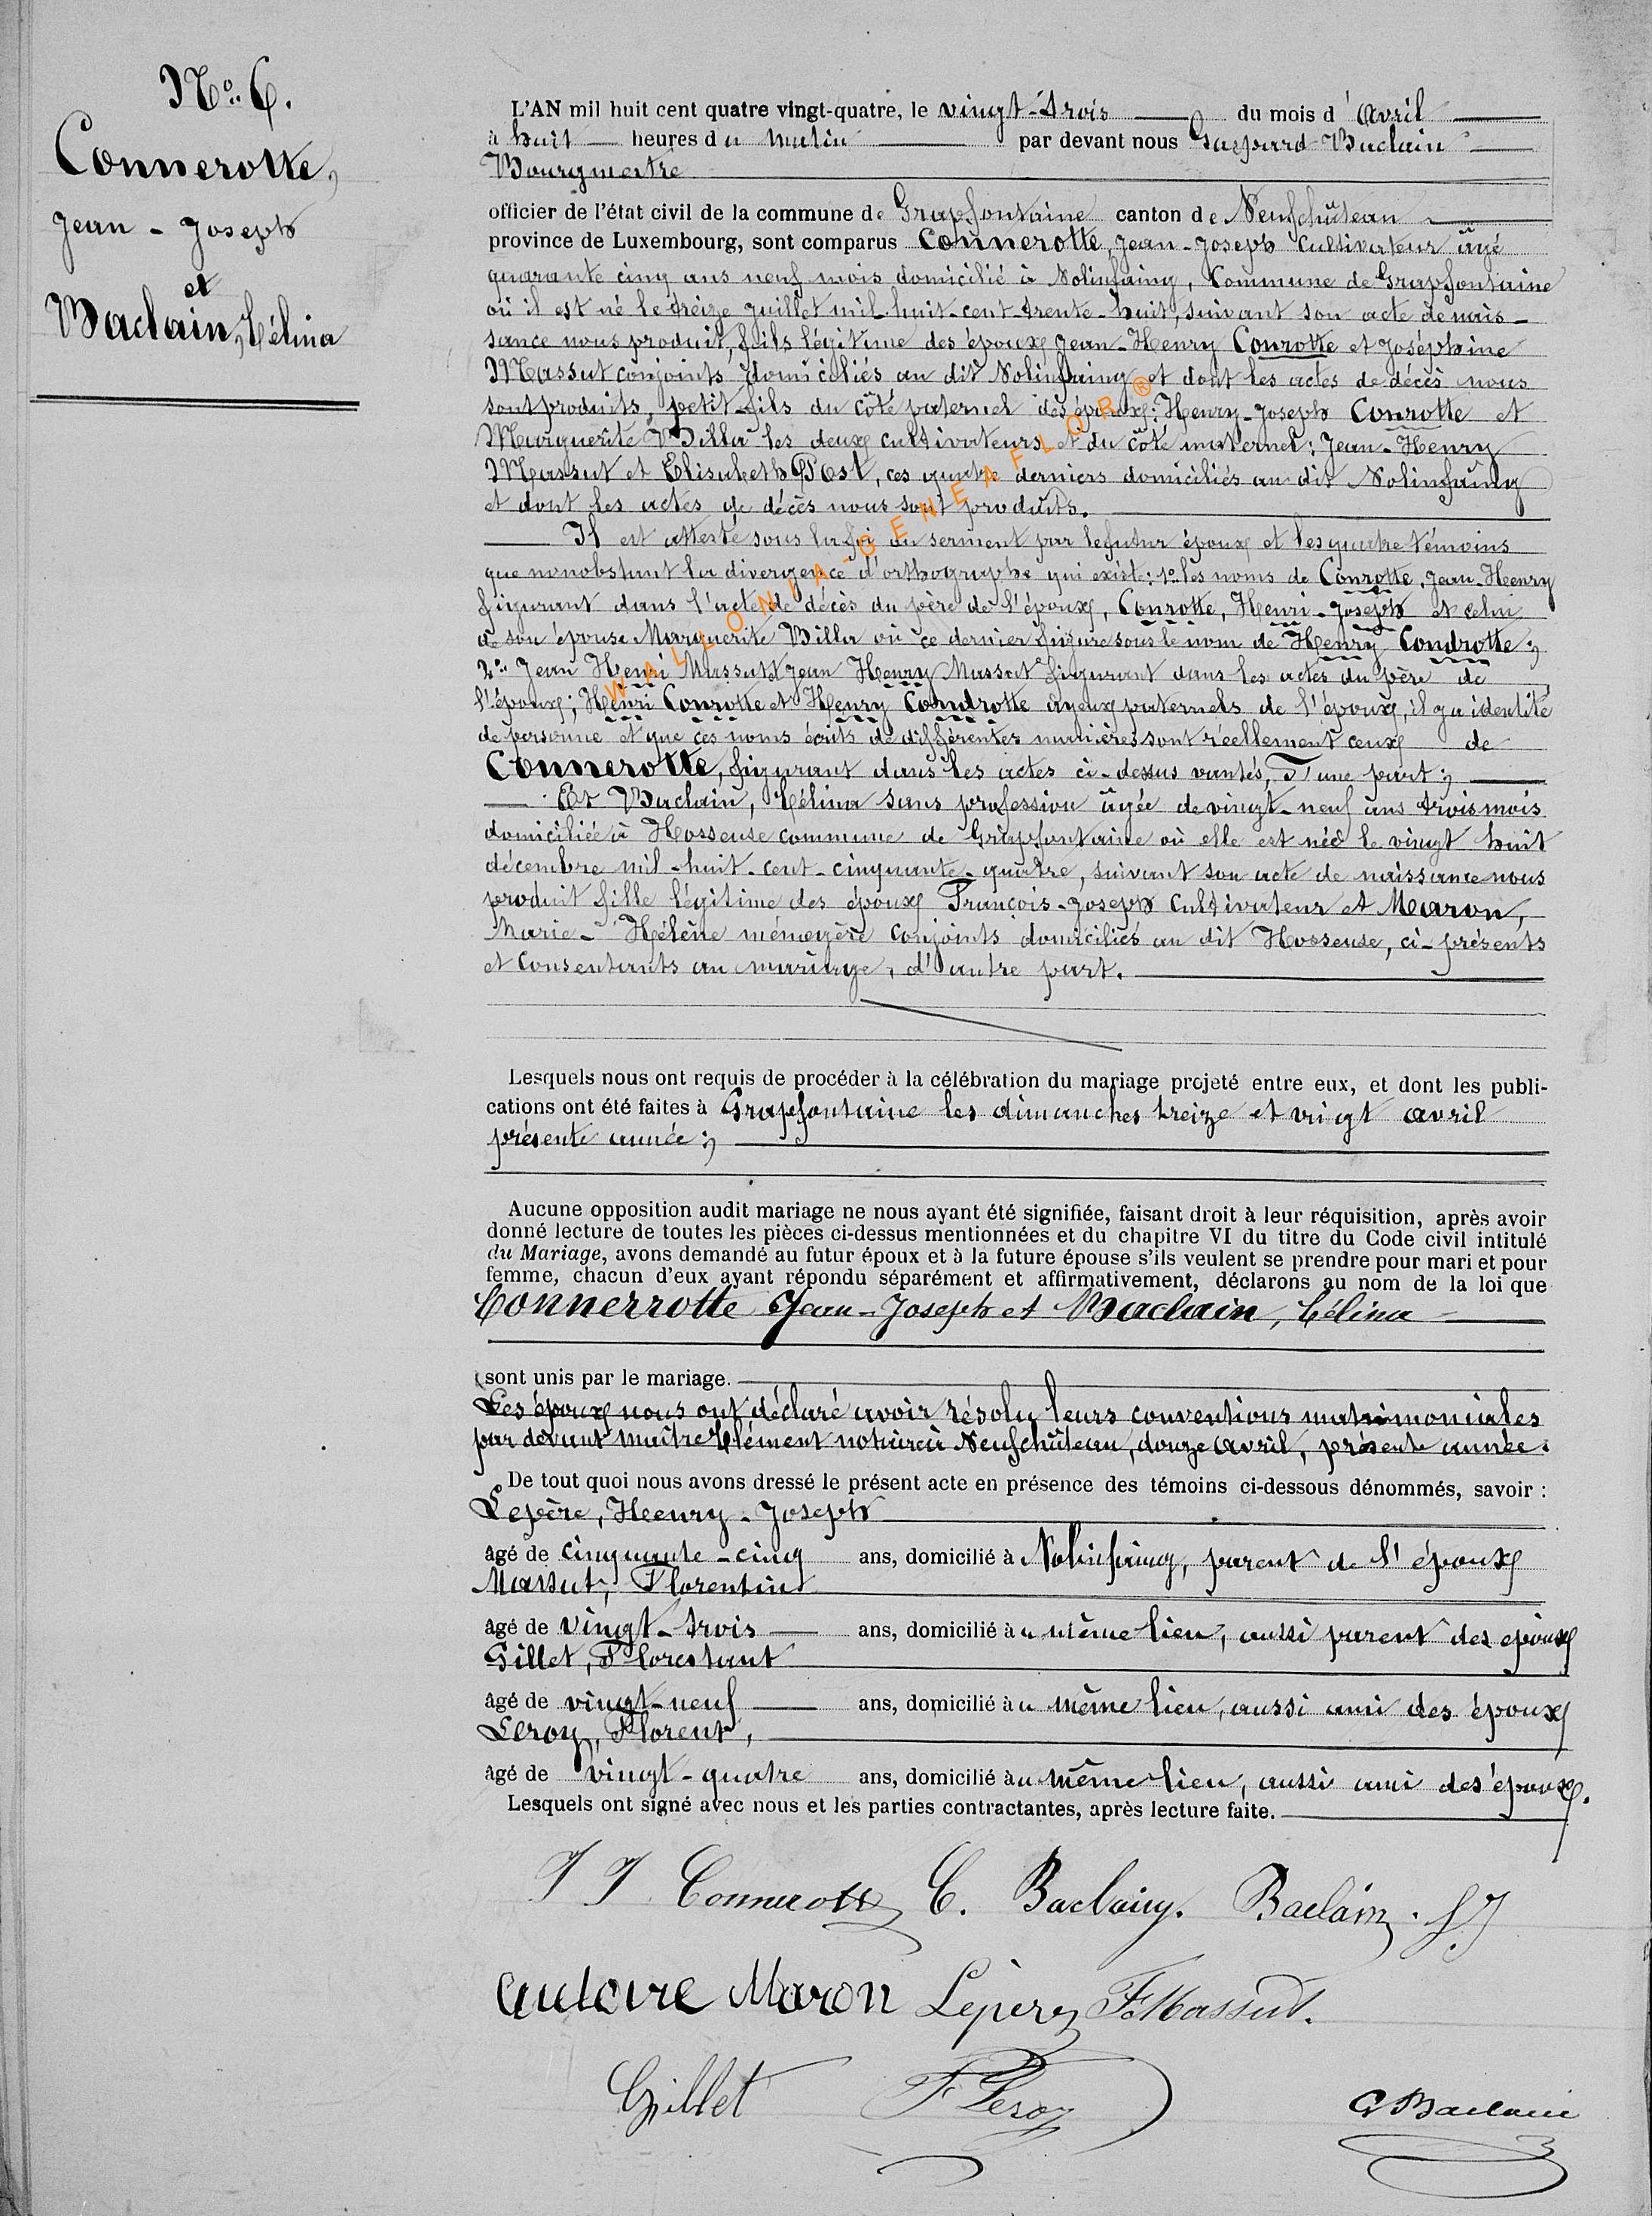 No. 6.
Connerotte,
Jean - Joseph
et
Baclain, Célina
L'AN mil huit cent quatre vingt-quatre, le vingt-trois du mois d'avril
à huit heures du matin par devant nous Gaspard Baclain
Bourgmestre
officier de l'état civil de la commune de Grapfontaine canton de Neufchâteau
province de Luxembourg, sont comparus Connerotte, Jean-Joseph cultivateur âgé
quarante cinq ans neuf mois domicilié à Nolinfaing, Commune de Grapfontaine
où il est né le treize juillet mil-huit-cent-trente-huit, suivant son acte de nais-
sance nous produit, fils légitime des époux Jean-Henry Conrotte et Joséphine
Massut conjoints domiciliés au dit Nolinfaing et dont les actes de décès nous
sont produits, petit-fils du côté paternel des époux: Henry-Joseph Conrotte et
Marguerite Billa les deux cultivateurs et du côté maternel: Jean-Henry
Massut et Elisabeth Post, ces quatre derniers domiciliés au dit Nolinfaing
et dont les actes de décès nous sont produits.
Il est attesté sous la foi du serment par le futur époux et les quatre témoins
que nonobstant la divergence d'orthographe qui existe: 1o. les noms de Conrotte, Jean-Heenry
figurant dans l'acte de décès du père de l'époux, Conrotte, Henri-Joseph et celui
de son épouse Marguerite Billa où ce dernier figure sous le nom de Henry Condrotte;
2o. Jean Henri Massut et Jean Henry Massut figurant dans les actes du père de
l'époux; Henri Conrotte et Henry Condrotte ayeux paternels de l'époux, il y a identité
de personne et que ces noms écrits de différentes manières sont réellement ceux de
Connerotte, figurant dans les actes ci-dessus vantés, D'une part;
Et Baclain, Célina sans profession âgée de vingt-neuf ans trois mois
domiciliée à Hosseuse commune de Grapfontaine où elle est née le vingt huit
décembre mil-huit-cent-cinquante-quatre, suivant son acte de naissance nous
produit fille légitime des époux François-Joseph Cultivateur et Maron,
Marie-Hélène ménagère conjoints domiciliés au dit Hosseuse, ci-présents
et consentants au mariage, d'autre part.
Lesquels nous ont requis de procéder à la célébration du mariage projeté entre eux, et dont les publi-
cations ont été faites à Grapfontaine les dimanches treize et vingt avril
présente année;
Aucune opposition audit mariage ne nous ayant été signifiée, faisant droit à leur réquisition, après avoir
donné lecture de toutes les pièces ci-dessus mentionnées et du chapitre VI du titre du Code civil intitulé
du Mariage, avons demandé au futur époux et à la future épouse s'ils veulent se prendre pour mari et pour
femme, chacun d'eux ayant répondu séparément et affirmativement, déclarons au nom de la loi que
Connerrotte Jean-Joseph et Baclain, Célina
sont unis par le mariage.
Les époux nous ont déclaré avoir résolu leurs conventions matrimoniales
par devant maître Clément notaire à Neufchâteau, douze avril, présente année.
De tout quoi nous avons dressé le présent acte en présence des témoins ci-dessous dénommés, savoir :
Lepère, Heenry-Joseph
âgé de cinquante-cinq ans, domicilié à Nolinfaing, parent de l'époux
Massut, Florentin
âgé de vingt-trois ans, domicilié au même lieu, aussi parent des époux
Gillet, Florestant
âgé de vingt-neuf ans, domicilié au même lieu, aussi ami des époux
Leroy, Florent,
âgé de vingt-quatre ans, domicilié au même lieu, aussi ami des époux.
Lesquels ont signé avec nous et les parties contractantes, après lecture faite.
J J Connerotte C. Baclain. Baclain. f. J
Maron Lepère F. Massut.
Gillet F Leroy G Baclain
WALLONIA-GENEAFLOR®